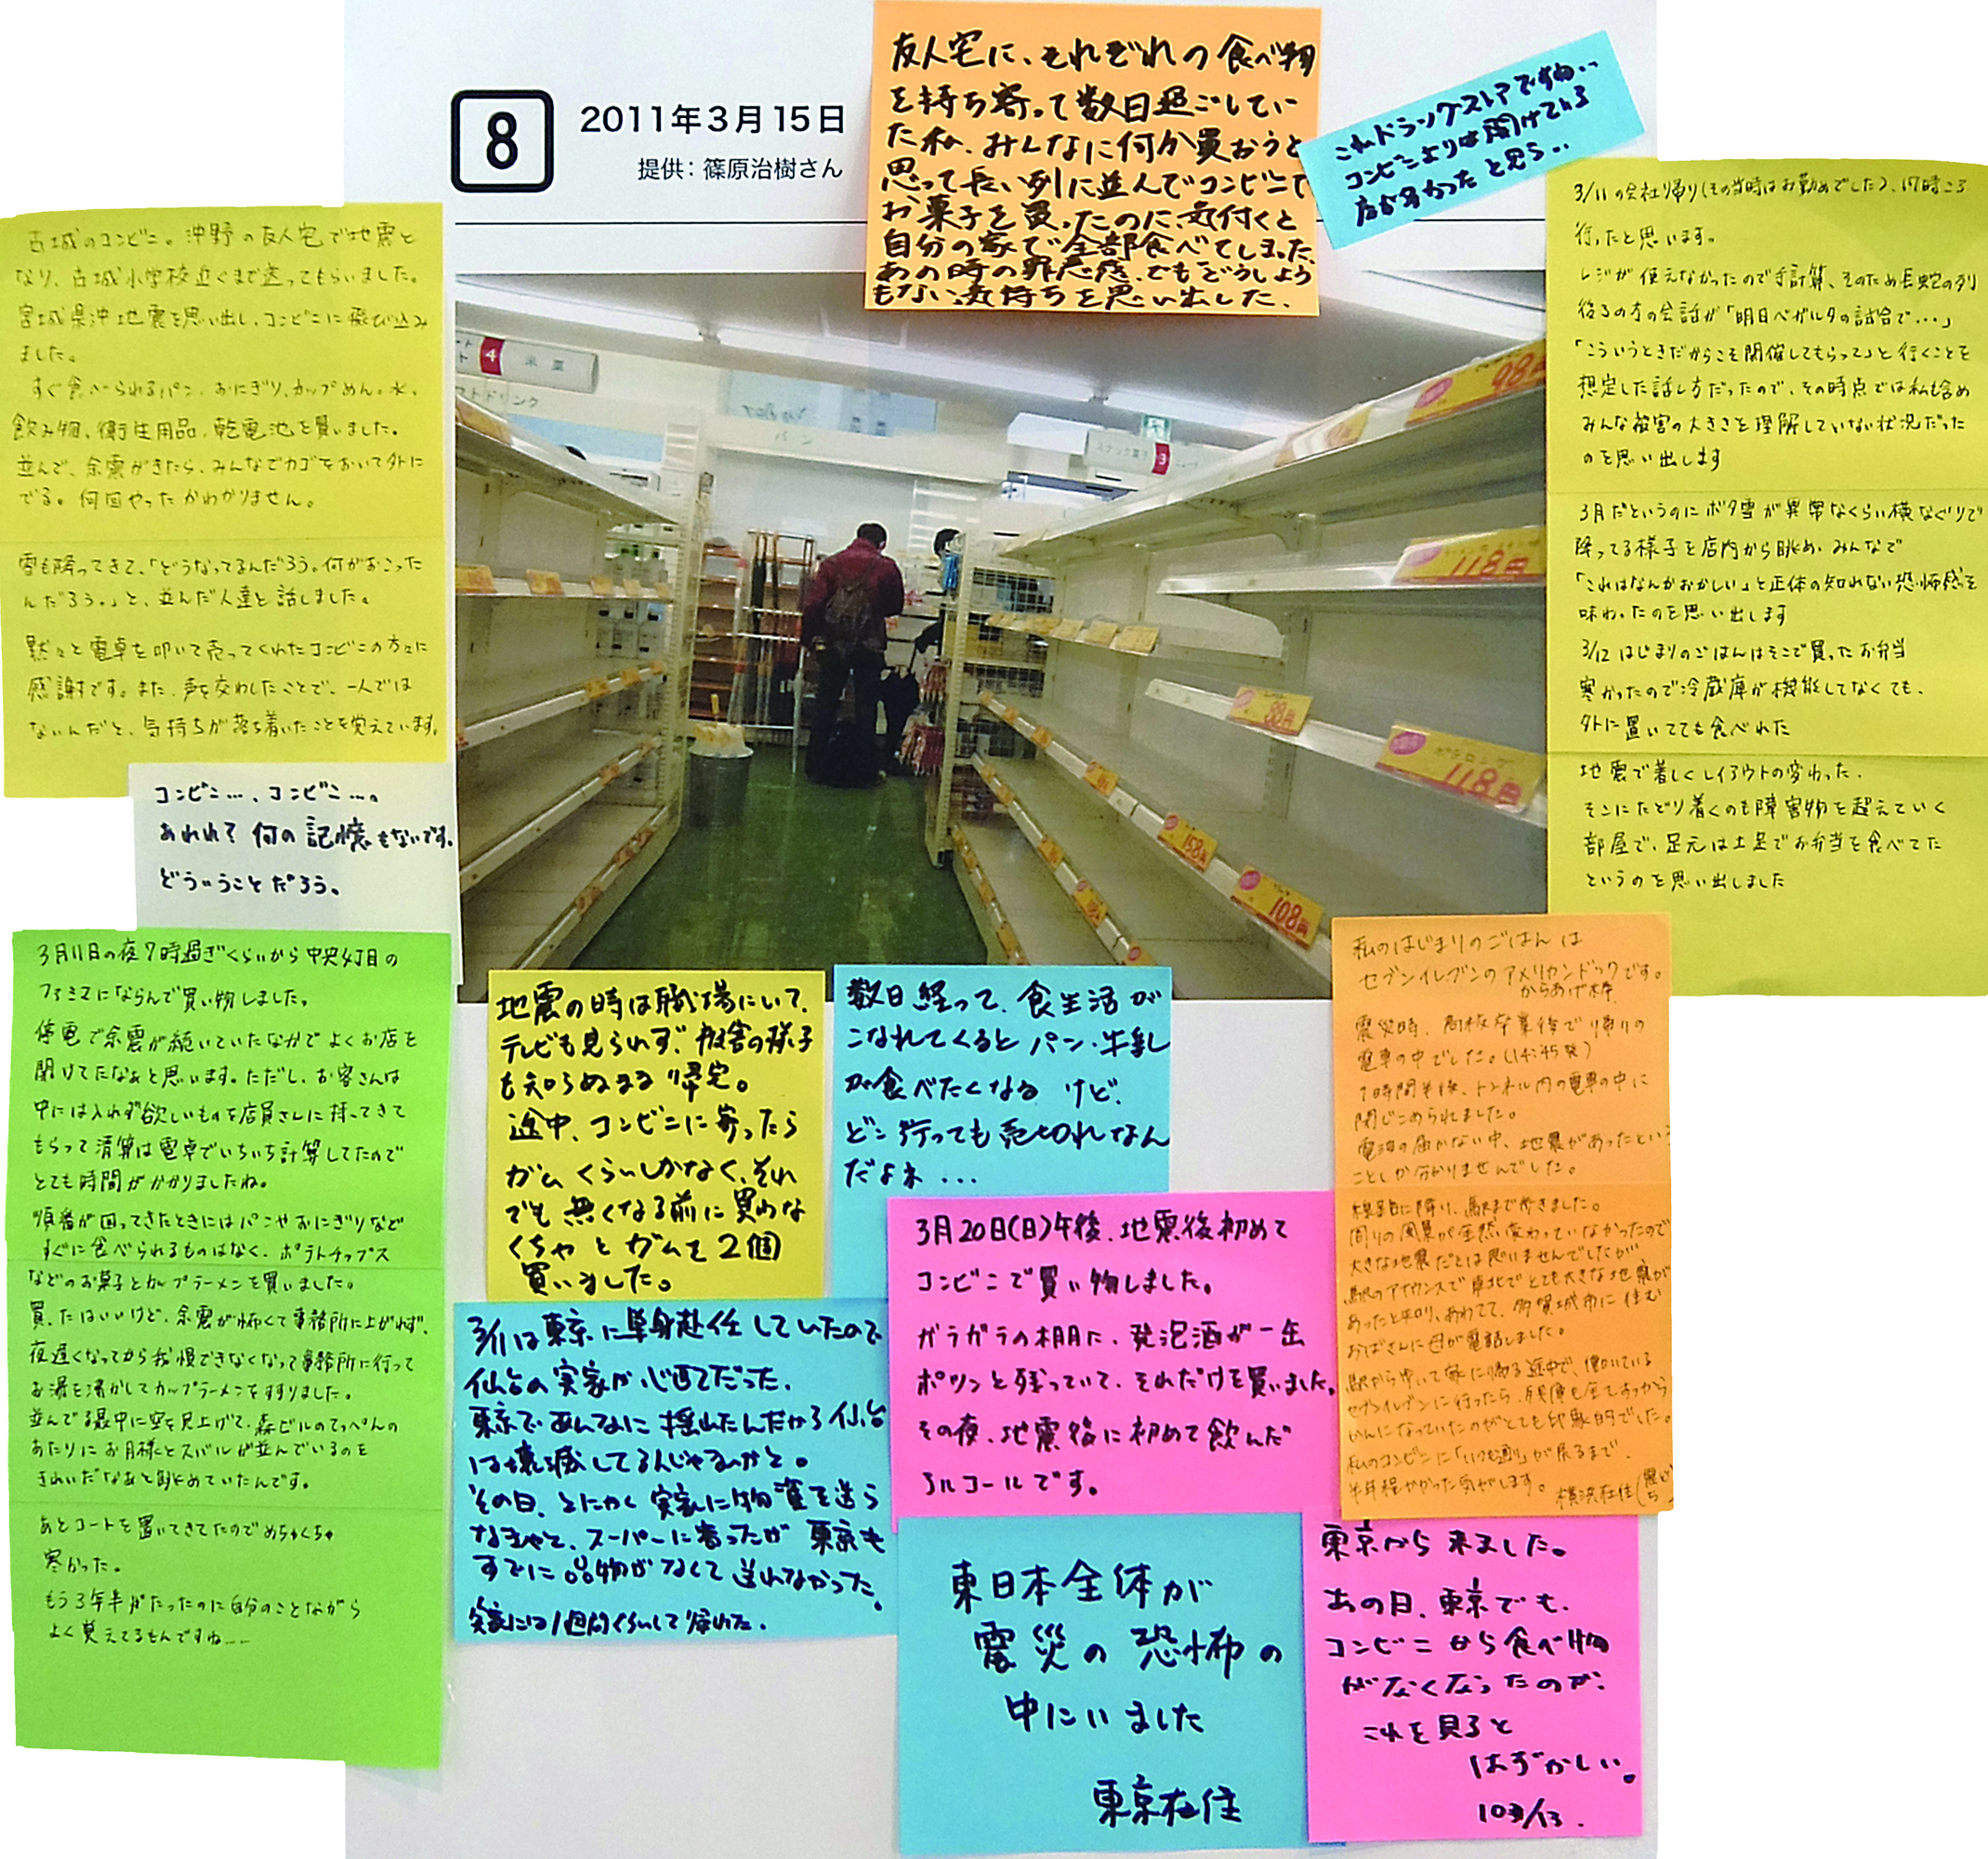 8
2011年3月15日
提供：篠原治樹さん
友人宅に、それぞれの食べ物
を持ち寄って数日過ごしてい
た私、みんなに何か買おうと
思って長い列に並んでコンビニで
お菓子を買ったのに、気付くと
自分の家で全部食べてしまった、
あの時の罪悪感、でもどうしよう
もない気持ちを思い出した、
これドラックストアですね‥
コンビニよりは開けてる
店多かったと思う‥
古城のコンビニ。沖野の友人宅で地震と
なり、古城小学校近くまで送ってもらいました。
宮城県沖地震を思い出し、コンビニに飛び込み
ました。
すぐ食べられるパン、おにぎり、カップめん。水、
飲み物、衛生用品、乾電池を買いました。
並んで、余震がきたら、みんなでカゴをおいて外に
でる。何回やったかわかりません。
雪も降ってきて、「どうなってるんだろう。何がおこった
んだろう。」と、並んだ人達と話しました。
黙々と電卓を叩いて売ってくれたコンビニの方々に
感謝です。また、声を交わしたことで、一人では
ないんだと、気持ちが落ち着いたことを覚えています。
3/11の会社帰り(その当時はお勤めでした)、17時ころ
行ったと思います。
レジが使えなかったので手計算、そのため長蛇の列
後ろの方の会話が「明日ベガルタの試合で…」
「こういうときだからこそ開催してもらって」と行くことを
想定した話し方だったので、その時点では私も含め
みんな被害の大きさを理解していない状況だった
のを思い出します
3月だというのにボタ雪が異常なくらい横なぐりで
降ってる様子を店内から眺め、みんなで
「これはなんかおかしい」と正体の知れない恐怖感を
味わったのを思い出します
3/12 はじまりのごはんはそこで買ったお弁当
寒かったので冷蔵庫が機能してなくても、
外に置いてても食べれた
地震で著しくレイアウトの変わった、
そこにたどり着くのも障害物を超えていく
部屋で、足元は土足でお弁当を食べてた
というのを思い出しました
4
米菓
ソフトドリンク
パン
スナック菓子
3
98円
118円
88円
ポテロング
118円
158円
108円
コンビニ…、コンビニ…。
あれれ？何の記憶もないです。
どういうことだろう。
3月11日の夜7時過ぎくらいから中央4丁目の
ファミマにならんで買い物しました。
停電で余震が続いていたなかでよくお店を
開けてたなぁと思います。ただし、お客さんは
中には入れず欲しいものを店員さんに持ってきて
もらって清算は電卓でいちいち計算してたので
とても時間がかかりましたね。
順番が回ってきたときにはパンやおにぎりなど
すぐに食べられるものはなく、ポテトチップス
などのお菓子とカップラーメンを買いました。
買ったはいいけど、余震が怖くて事務所に上がれず、
夜遅くなってから我慢できなくなって事務所に行って
お湯を沸かしてカップラーメンをすすりました。
並んでる最中に空を見上げて、森ビルのてっぺんの
あたりにお月様とスバルが並んでいるのを
きれいだなぁと眺めていたんです。
あとコートを置いてきてたのでめちゃくちゃ
寒かった。
もう3年半がたったのに自分のことながら
よく覚えてるもんですね……
地震の時は職場にいて、
テレビも見られず、被害の様子
も知らぬまま帰宅。
途中、コンビニに寄ったら
ガムくらいしかなく、それ
でも無くなる前に買わな
くちゃとガムを2個
買いました。
数日経って、食生活が
こなれてくるとパン・牛乳
が食べたくなるけど、
どこ行っても売切れなん
だよネ…
3/11は東京に単身赴任していたので
仙台の実家が心配だった、
東京であんなに揺れたんだから仙台
は壊滅してるんじゃないかと。
その日、とにかく実家に物資を送ら
なきゃと、スーパーに寄ったが東京も
すでに品物がなくて送れなかった。
実家には1週間くらいして帰れた。
3月20日(日)午後、地震後初めて
コンビニで買い物しました。
ガラガラの棚に、発泡酒が一缶
ポツンと残っていて、それだけを買いました。
その夜、地震後に初めて飲んだ
アルコールです。
東日本全体が
震災の恐怖の
中にいました
東京在住
私のはじまりのごはんは
セブンイレブンのアメリカンドックです。
からあげ棒
震災時、高校卒業後で帰りの
電車の中でした。(14:45発)
1時間半後、トンネル内の電車の中に
閉じこめられました。
電波の届かない中、地震があったという
ことしか分かりませんでした。
線路に降り、駅まで歩きました。
周りの風景が全然変わっていなかったので
大きな地震だとは思いませんでしたが
駅のアナウンスで東北でとても大きな地震が
あったと知り、あわてて、多賀城市に住む
おばさんに母が電話しました。
駅から歩いて家に帰る途中で、働いている
セブンイレブンに行ったら、在庫も全てすっから
かんになっていたのがとても印象的でした。
私のコンビニに「いつも通り」が戻るまで、
半年程かかった気がします。 横浜在住
東京から来ました。
あの日、東京でも、
コンビニから食べ物
がなくなったのが、
これを見ると
はずかしい。